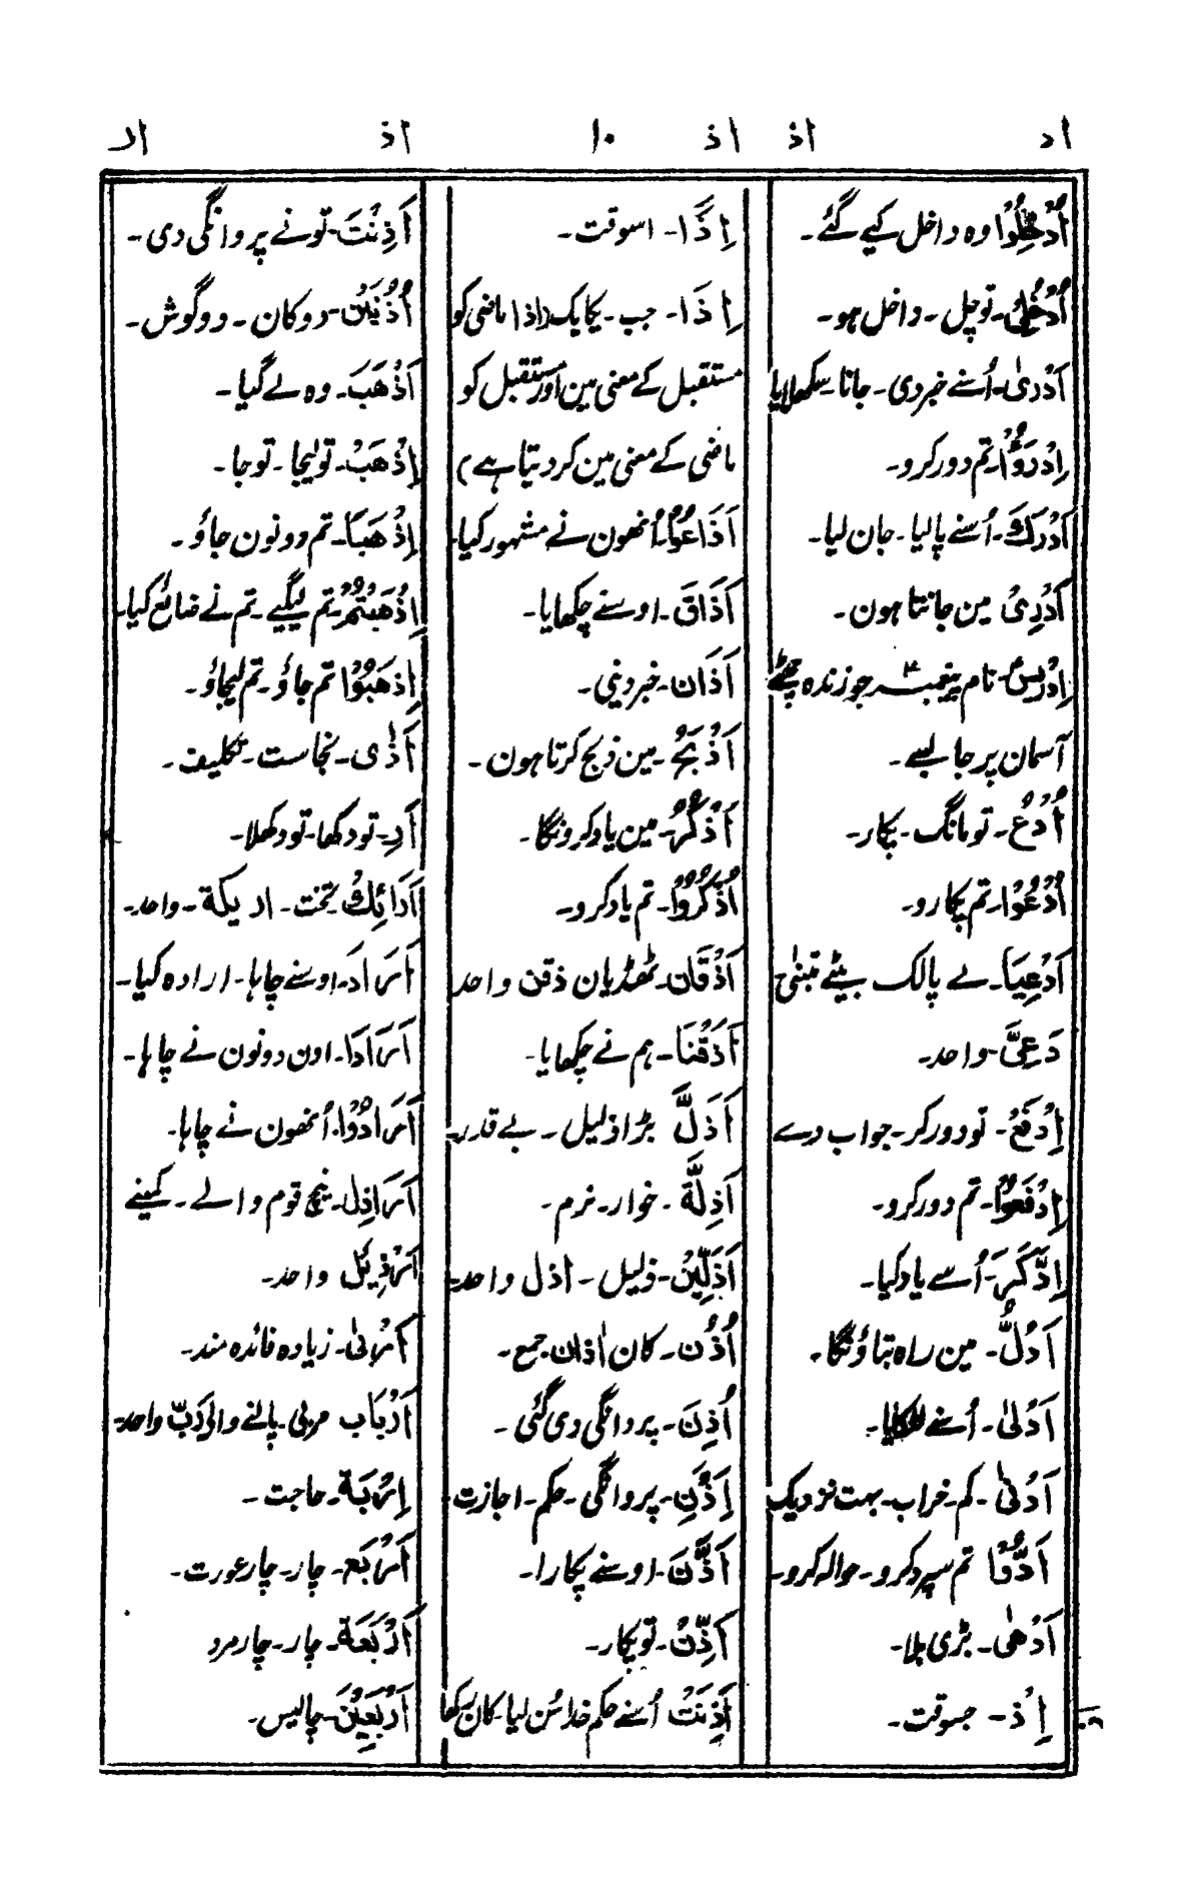 اد اذ اذ ۱۰ اذ ار
اُدْخِلُوْا وہ داخل کیے گئے۔
اُدْخُلِیْ۔ تو چل۔ داخل ہو۔
اَدْریٰ۔ اُسنے خبر دی۔ جانا۔ سکھلایا
اِدْرَؤُا۔ تم دور کرو۔
اَدْرَكَ۔ اُسنے پالیا۔ جان لیا۔
اَدْرِیْ مین جانتا ہون۔
اِدْرِیْسُ۔ نام پیغمبر جو زندہ
آسمان پر جا بسے۔
اُدْعُ۔ تو مانگ۔ پکار۔
اُدْعُوْا۔ تم پکارو۔
اَدْعِیَا۔ لے پالک بیٹے تبنیٰ
دَعِیَّ۔ واحد۔
اِدْفَعْ۔ تو دور کر۔ جواب دے
اِدْفَعُوْا۔ تم دور کرو۔
اِدَّكَرَ۔ اُسے یاد کیا۔
اَدُلُّ۔ مین راہ بتاؤنگا۔
اَدْلیٰ۔ اُسنے لٹکایا۔
اَدْنیٰ۔ کم۔ خراب۔ بہت نزدیک
اَدُّوْا تم سپرد کرو۔ حوالہ کرو۔
اَدْهیٰ۔ بڑی بلا۔
اِذْ۔ جسوقت۔
اِذًا۔ اسوقت۔
اِذَا۔ جب۔ یکایک (اذا ماضی کو
مستقبل کے معنی مین اور مستقبل کو
ماضی کے معنی مین کر دیتا ہے)
اَذَاعُوْا۔ اُنھون نے مشہور کیا۔
اَذَاقَ۔ اوسنے چکھایا۔
اَذَان۔ خبر دینی۔
اَذْبَحُ۔ مین ذبح کرتا ہون۔
اَذْكُرُ۔ مین یاد کرونگا۔
اُذْكُرُوْا۔ تم یاد کرو۔
اَذْقَان۔ ٹھڈیان ذقن واحد
اَذَقْنَا۔ ہم نے چکھایا۔
اَذَلَّ بڑا ذلیل۔ بے قدر۔
اَذِلَّة۔ خوار۔ نرم۔
اَذَلِّیْنَ۔ ذلیل۔ اذل واحد۔
اُذُن۔ کان اٰذان جمع۔
اُذِنَ۔ پروانگی دی گئی۔
اِذْنِ۔ پروانگی۔ حکم۔ اجازت۔
اَذَّنَ۔ اوسنے پکارا۔
اَذِّنْ۔ تو پکار۔
اَذِنَتْ اُسنے حکم خدا سُن لیا۔ کان رکھا
اَذِنْتَ۔ تو نے پروانگی دی۔
اُذُنَیْن۔ دو کان۔ دو گوش۔
اَذْهَبَ۔ وہ لے گیا۔
اِذْهَبْ۔ تو لیجا۔ تو جا۔
اِذْهَبَا۔ تم دونون جاؤ۔
اِذْهَبْتُمْ۔ تم لیگیے۔ تم نے ضائع کیا۔
اِذهَبُوْا تم جاؤ۔ تم لیجاؤ۔
اَذٰی۔ نجاست۔ تکلیف۔
اَرِ۔ تو دکھا۔ تو دکھلا۔
اَرَائِكُ۔ تخت۔ اریكة۔ واحد۔
اَرَادَ۔ اوسنے چاہا۔ ارادہ کیا۔
اَرَادَا۔ اون دونون نے چاہا۔
اَرَادُوْا۔ اُنھون نے چاہا۔
اَرَاذِل۔ نیچ قوم والے۔ کمینے
اَرْذِئل واحد۔
اَرْبیٰ۔ زیادہ فائدہ مند۔
اَرْبَاب مربی۔ پالنے والے رَبّ واحد۔
اِرْبَة۔ حاجت۔
اَرْبَع۔ چار۔ چار عورت۔
اَرْبَعَة۔ چار۔ چار مرد
اَرْبَعِیْنَ۔ چالیس۔